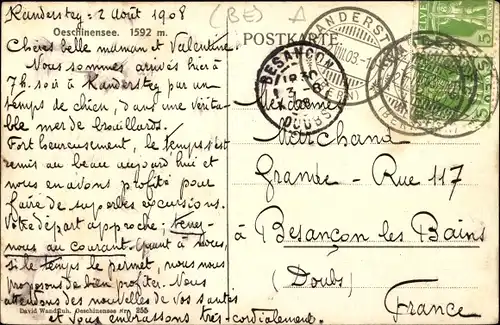 Kandersteg - 2 Août 1908
(BE) A
Oeschinensee. 1592 m.
Chères belle maman et Valentine
Nous sommes arrivés hier à
7h. soir à Kandersteg par un
temps de chien, dans une vérita-
ble mer de brouillards.
Fort heureusement, le temps s'est
remis au beau aujourd'hui et
nous en avons profité pour
faire de superbes excursions.
Votre départ approche; tenez-
nous au courant. Quant à nous,
si le temps le permet, nous nous
proposons de bien profiter. Nous
attendons des nouvelles de vos santés
et vous embrassons très cordialement.
David Wandfluh, Oeschinensee 255
POSTKARTE
KANDERSTEG
BESANÇON
DOUBS
HELVETIA
5
5
Marchand
Grande-Rue 117
à Besançon les Bains
(Doubs)
France